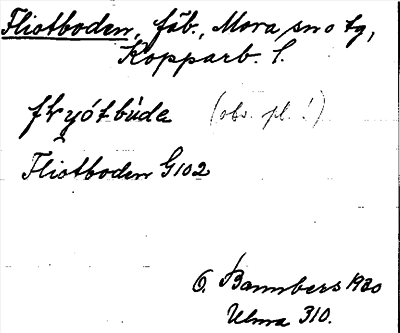 Fliotboden, fäb., Mora sn o tg,
Kopparb. l.
(obs. pl.!)
Fliotboden G102
O. Bannbers 1930
Ulma 310.